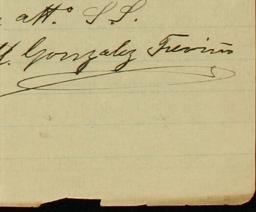 att.º S S.
M. Gonzalez Treviño